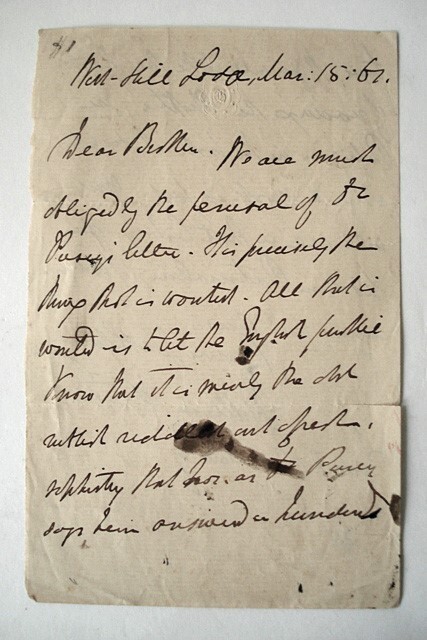 #1
West-Hill Lodge, Mar: 15: 61.
Dear Brother. We are much
obliged by the perusal of Dr
Pusey's letter. It is precisely the
thing that is wanted. All that is
wanted is to let the English public
know that it is merely the old
rubbish out afresh,
sophistry that has, as Dr Pusey
says been answered a hundred